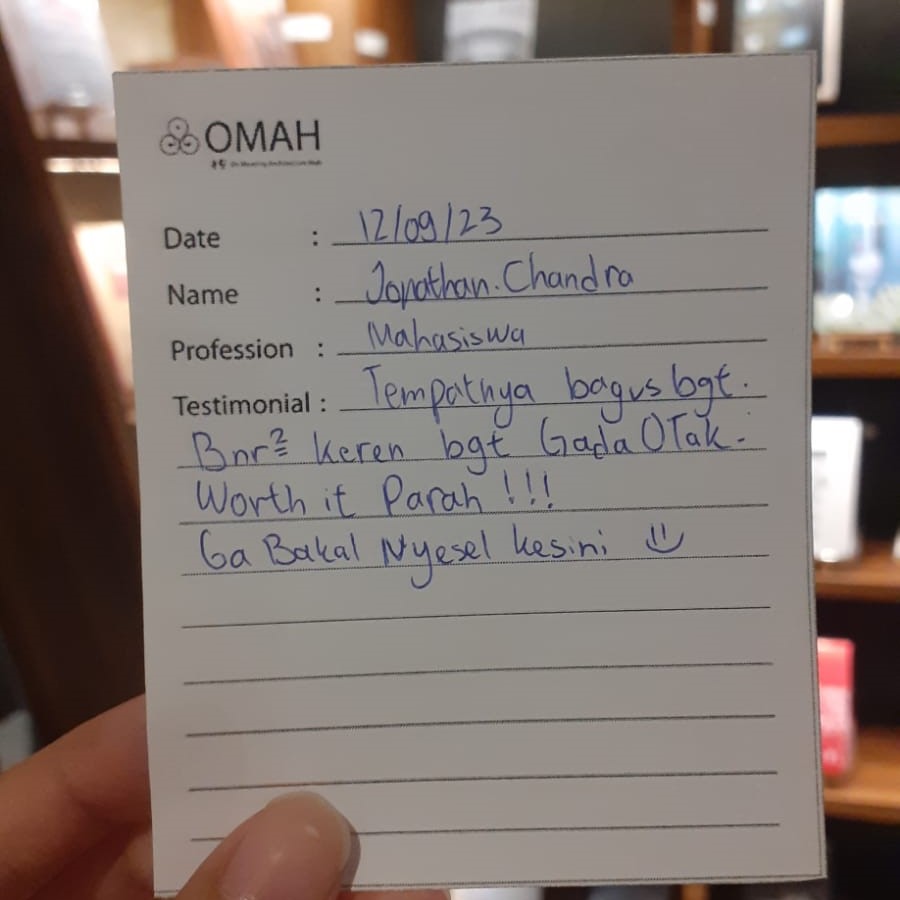 OMAH
Date : 12/09/23
Name : Jonathan.Chandra
Profession : Mahasiswa
Testimonial : Tempatnya bagus bgt.
Bnr² keren bgt Gada OTak.
Worth it Parah !!!
Ga Bakal Nyesel kesini